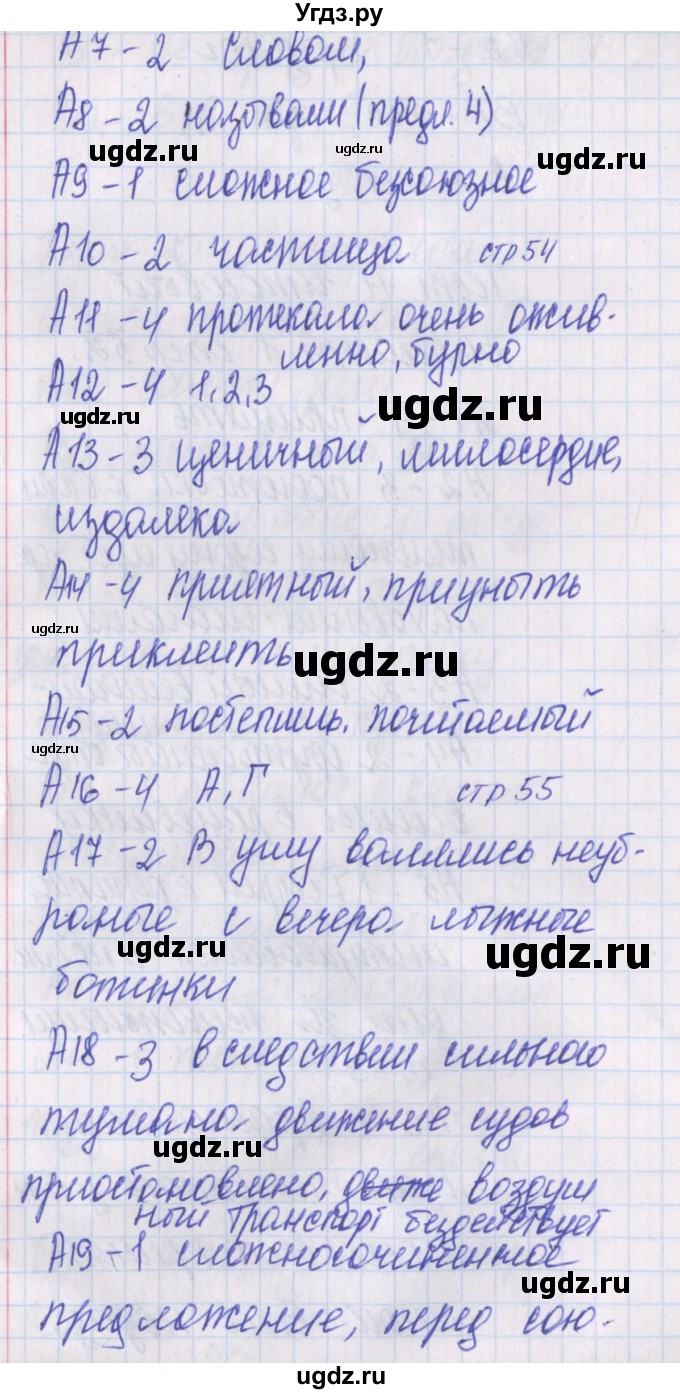 Угдз.ру
А7-2 Словом,
А8-2 называли (предл. 4)
ugdz.ru ugdz.ru ugdz.ru
А9-1 сложное безсоюзное
А10-2 частица стр 54
А11-4 протекала очень ожив-
ленно, бурно
А12-4 1,2,3
ugdz.ru ugdz.ru
А13-3 цепичный, милосердие,
издалека
А14-4 приятный, приуныть
ugdz.ru
приклеить
ugdz.ru
А15-2 почитаемый
ugdz.ru
А16-4 А, Г стр 55
А17-2 В углу валялись неуб-
раные с вечера лыжные
ugdz.ru ugdz.ru
ботинки
А18-3 в следствии сильного
тумана движение судов
ugdz.ru
приостановлено, движе воздуш
ный транспорт бездействует
А19-1 сложносочиненное
ugdz.ru
предложение, перед сою-
ugdz.ru